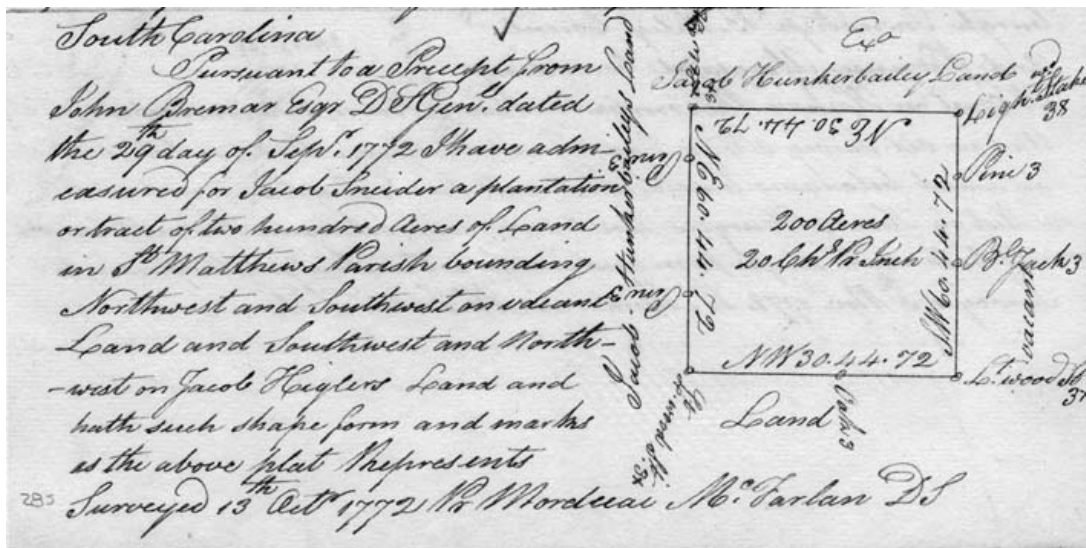 South Carolina
Pursuant to a Precept from
John Bremar Esqr. D S Genl. dated
the 29th day of Sepr. 1772 I have adm-
easured for Jacob Sneider a plantation
or tract of two hundred Acres of Land
in St Matthews Parish bounding
Northwest and Southwest on vacant
Land and Southwest and North-
-west on Jacob Higlers Land and
hath such shape form and marks
as the above plat Represents
Surveyed 13th Octr 1772 Pr Mordecai Mc Farlan DS
285
Exo
Jacob Hunkerbailey Land
Jacob Hunkerbaileys Land
NE 30.44.72
NE 60.44.72
Pine 3
Pine 3
200 Acres
20 Chs Pr Inch
SW 60.44.72
NW 30.44.72
Pine 3
Bk Jack 3
vacant
Land
Oak 3
Lt. wood St